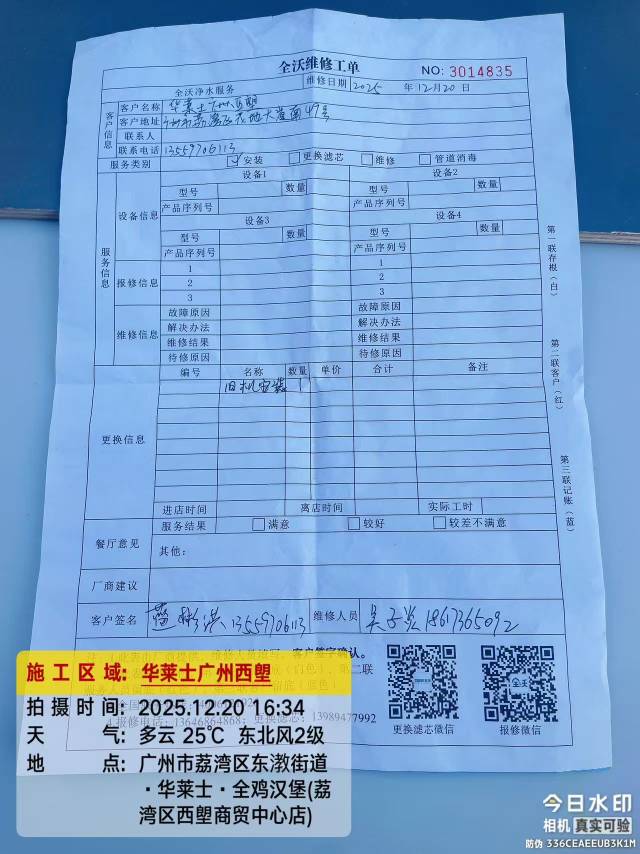 全沃维修工单
NO: 3014835
全沃净水服务 维修日期 2025 年 12月20日
客户信息
客户名称 华莱士广州西塱
客户地址 荔湾区花地大道南49号
联系人
联系电话 13559706113
服务类别 ✓安装 更换滤芯 维修 管道消毒
服务信息
设备信息
设备1 设备2
型号 数量 型号 数量
产品序列号 产品序列号
设备3 设备4
型号 数量 型号 数量
产品序列号 产品序列号
报修信息
1 1
2 2
3 3
维修信息
故障原因 故障原因
解决办法 解决办法
维修结果 维修结果
待修原因 待修原因
更换信息
编号 名称 数量 单价 合计 备注
旧机安装 1
进店时间 离店时间 实际工时
餐厅意见
服务结果 满意 较好 较差不满意
其他:
厂商建议
客户签名 13559706113 维修人员 18617365092
第一联存根(白)
第二联客户(红)
第三联记账(蓝)
客户签字确认。
4.报修电话: 13646864868; 更换滤芯: 13989477992
更换滤芯微信 报修微信
施工区域: 华莱士广州西塱
拍摄时间: 2025.12.20 16:34
天气: 多云 25℃ 东北风2级
地点: 广州市荔湾区东漖街道
·华莱士·全鸡汉堡(荔
湾区西塱商贸中心店)
今日水印
相机 真实可验
防伪 336CEAEEUB3K1M